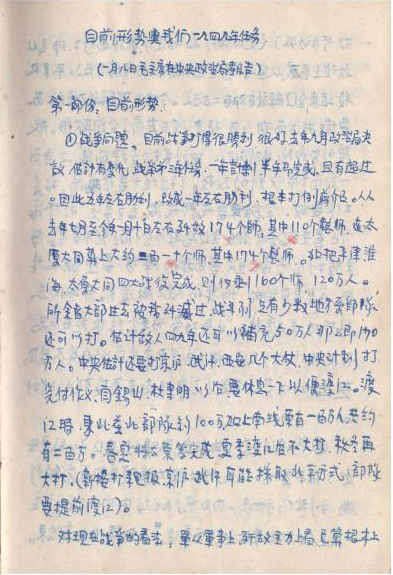 目前形势与我们一九四九年任务
(一月八日毛主席在中央政治局报告)
第一部份:目前形势.
①战争问题、目前战争打得很胜利 很好去年九月政治局决
议 估计有变化,战争第三年任务,一年言割 半年即完成,且有超过
。因此五年左右胜利,改成一年左右胜利,根本打倒蒋介石。从
去年七月至今年一月十日左右歼敌174个师,其中110个整师,连太
原大同算上大约二百一十个师,其中174个整师。北把平津淮
海、太原大同四大战役完成,则歼敌160个师,120万人。
所余大部过去被我歼灭过,战斗弱,只有少数地方部队
还可以打。估计敌人四九年还可以补充50万人那么即170
万人。中央估计还要打京沪、武汉、西安几个大仗,中央计划打
完付作义、阎锡山、杜聿明以后要休息一下以便渡江。渡
江时,东北华北部队约100万,加上南线原有一百万人,共约
有二百万。春夏休公整完成,夏季渡江后不大打,秋冬再
大打,(新攘打,现报京沪武汉可能採取北平方式,部队
要提前渡江)。
对现在战争的看法:单以军事上解放全力上看已算根本上